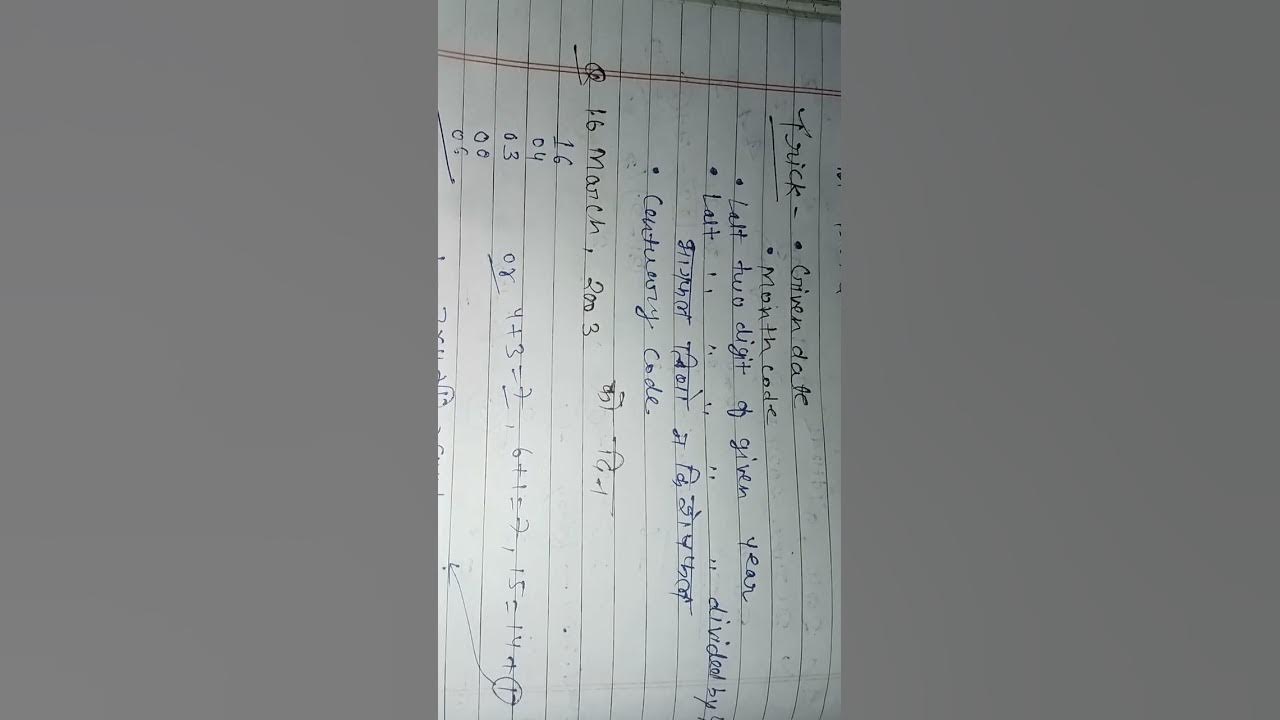 Trick - • Given date
• Month code
• Last two digit of given year
• Last " " " " " divided by
भागफल
• Centuary Code.
Q 16 March, 2003 को दिन
16
04
03 or 4+3=7, 6+1=7, 15=14+1
00
06